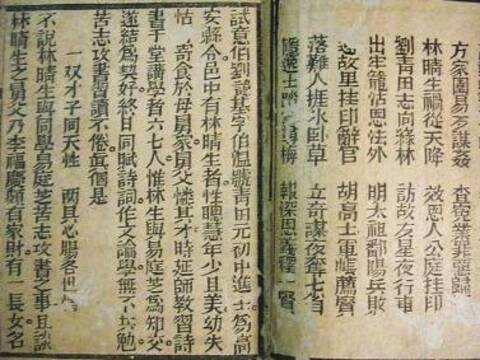 方家園易芝謀姦 查冤業罪歸
林晴生禍從天降 效恩人公庭挂印
劉青田志向綠林 訪故友星夜行車
出生籠沽恩法外 明太祖鄱陽兵敗
故里挂印辭官 胡高士軍幃薦賢
落難人捱氷臥草 立奇謀夜奪七省
逸士梅 報深恩義釋一賢
試意伯劉諱基字伯溫號青田元初中進士為高
安縣令邑中有林晴生者性聰慧年少且美幼失
怙寄食於母舅家舅父憐其才時延師教習詩
書于堂講學者六七人惟林生與易庭芝為知交
遂結為契好終日同賦詩詞作文論學無不共勉
苦志攻書習讀不倦眞個是
一双才子同天性 兩具心腸各世
不說林晴生與同學易庭芝苦志攻書之事且說
林晴生之舅父乃李福慶頗有家財有一長女名